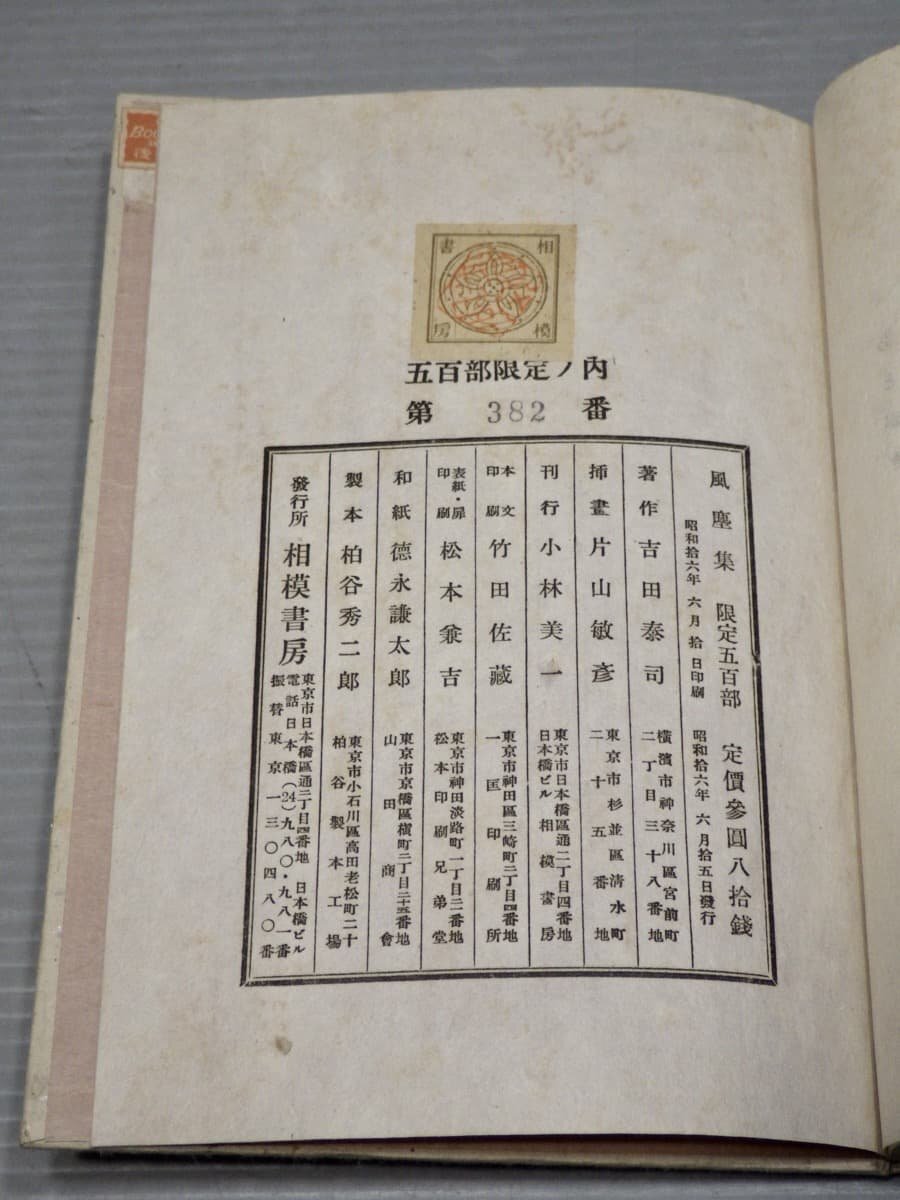 Boo
後
相模書房
五百部限定ノ内
第 382 番
風塵集 限定五百部 定價參圓八拾錢
昭和拾六年 六月 拾 日印刷 昭和拾六年 六月拾五日發行
著作 吉田泰司 橫濱市神奈川區宮前町
二丁目三十八番地
揷畫 片山敏彥 東京市杉並區淸水町
二十五番地
刊行 小林美一 東京市日本橋區通二丁目四番地
日本橋ビル 相模書房
本文印刷 竹田佐藏 東京市神田區三崎町二丁目四番地
一匡印刷所
表紙・扉印刷 松本兼吉 東京市神田淡路町一丁目二番地
松本印刷兄弟堂
和紙 德永謙太郎 東京市京橋區槇町二丁目二十五番地
山田商會
製本 柏谷秀二郎 東京市小石川區高田老松町二十
柏谷製本工場
發行所 相模書房 東京市日本橋區通二丁目四番地 日本橋ビル
電話日本橋(24)九八〇・九八一番
振替東京一三〇四八〇番